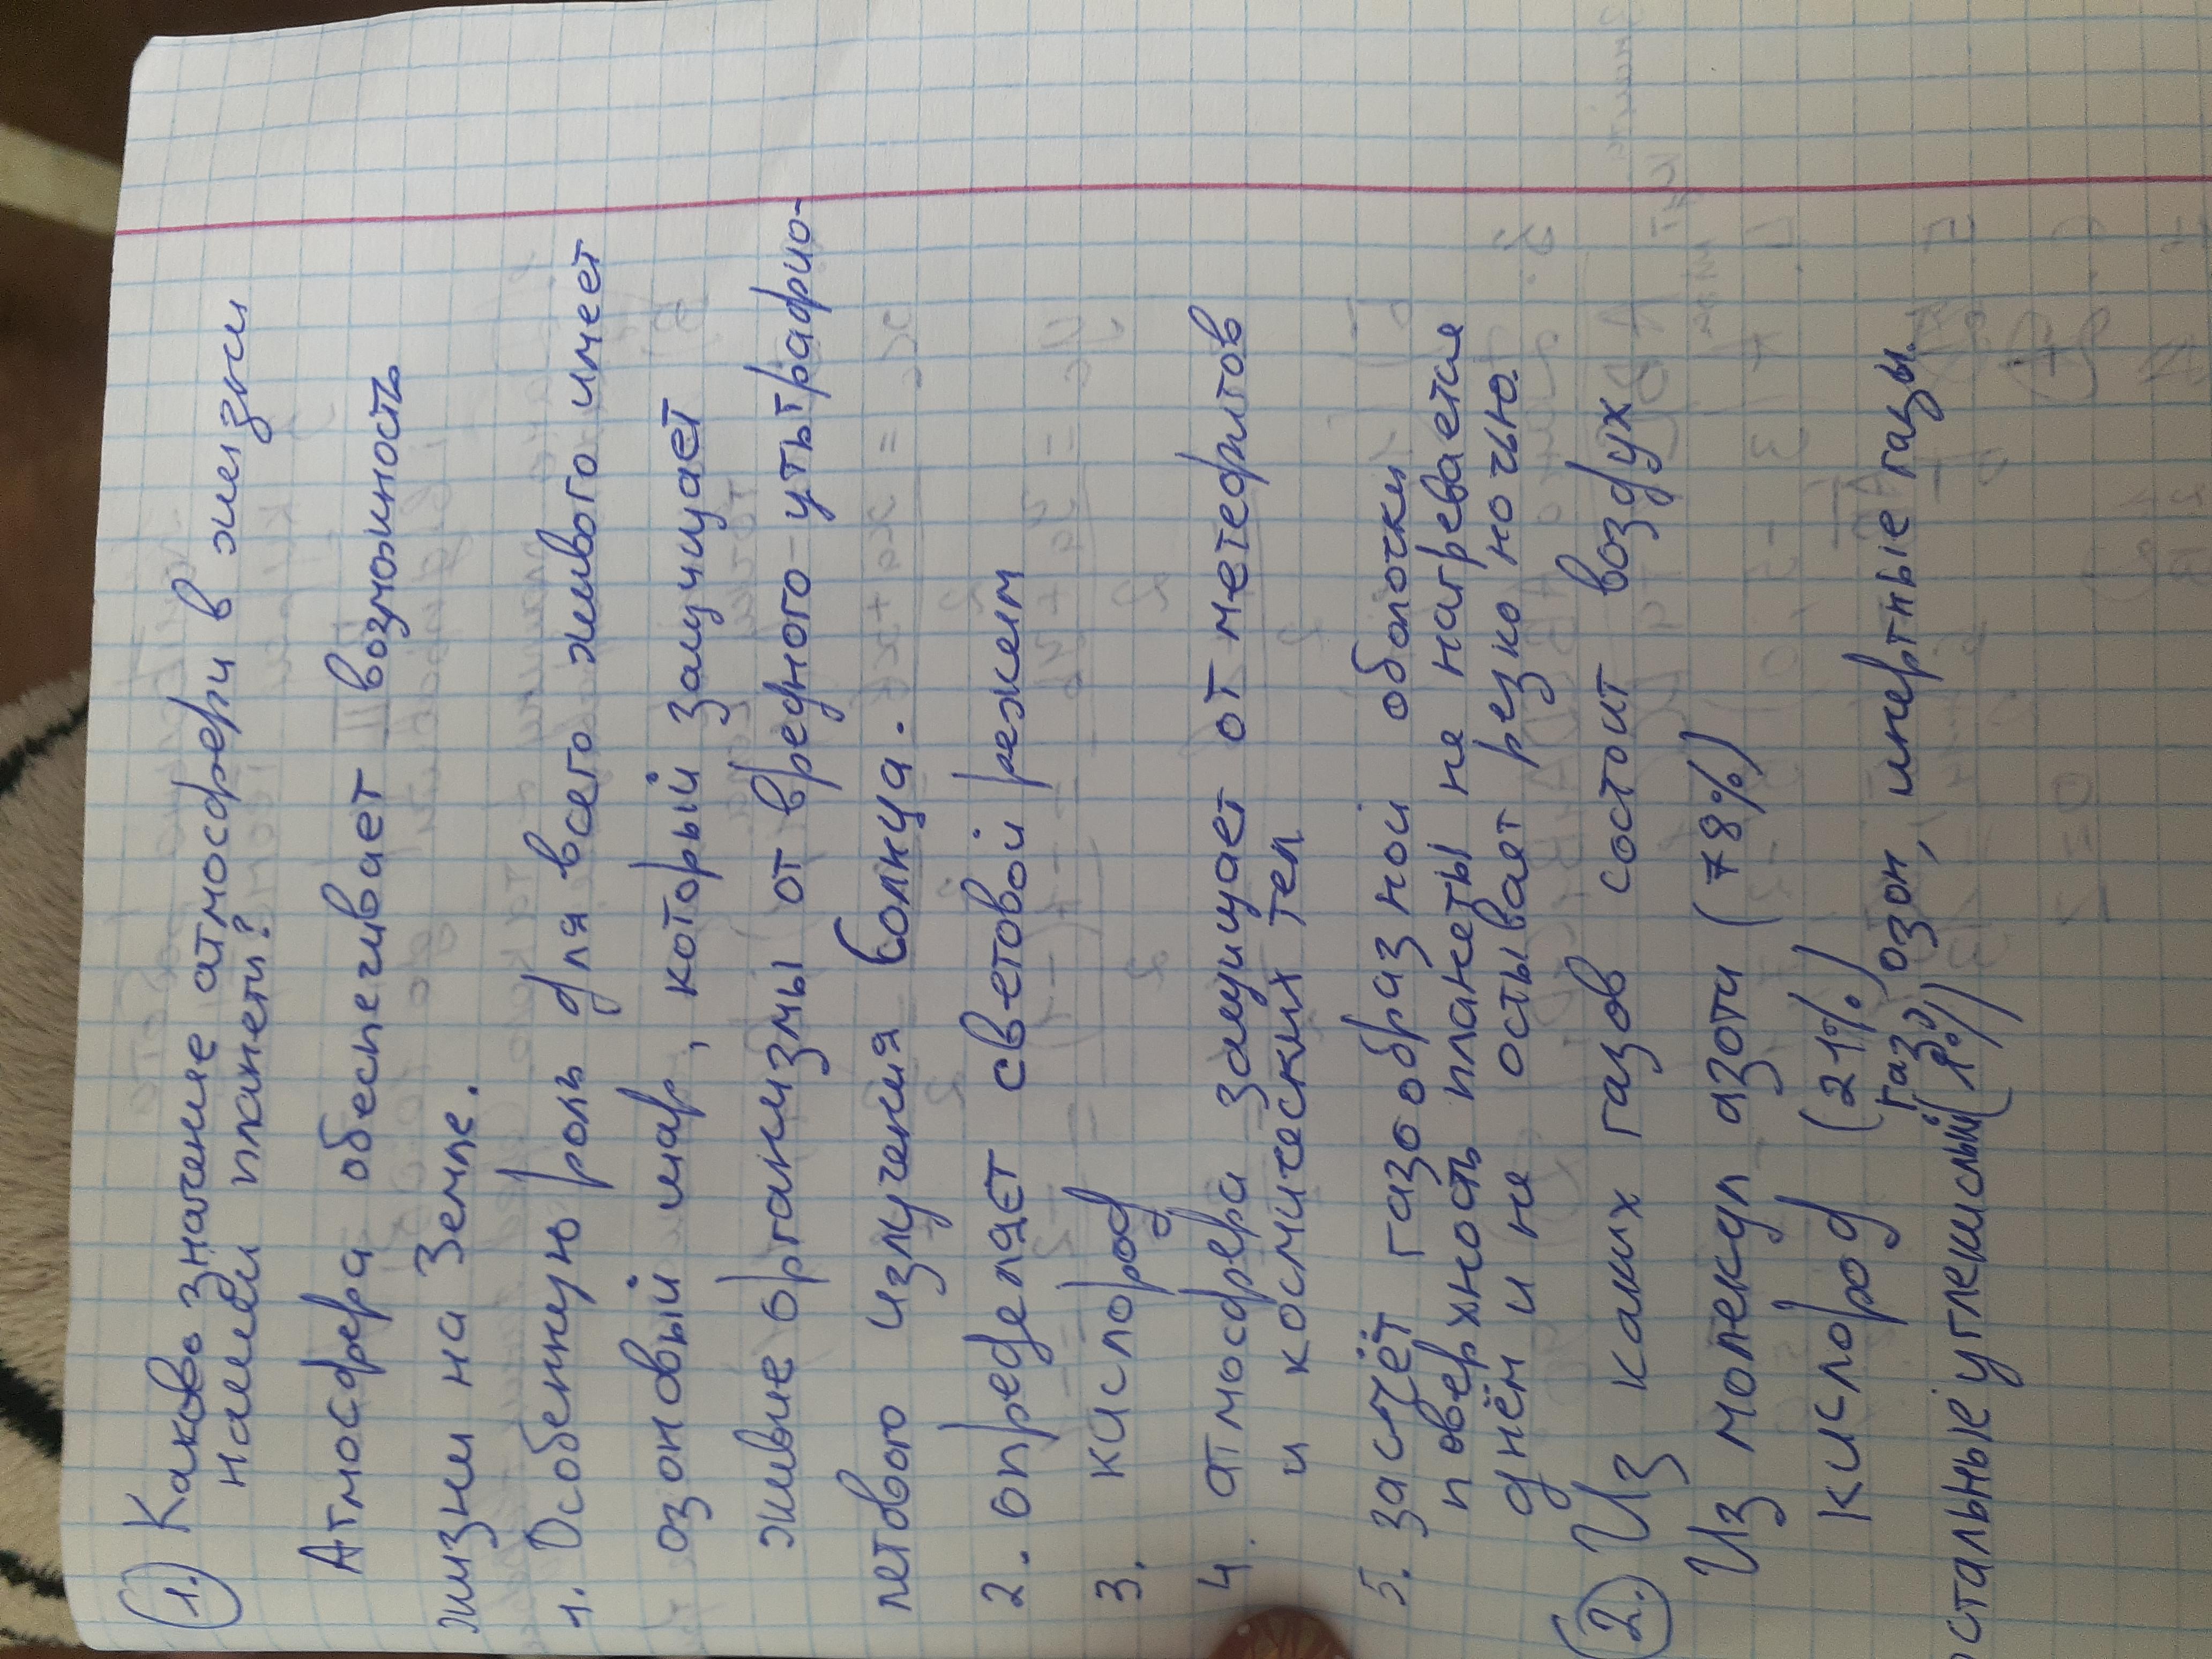 1. Каково значение атмосферы в жизни
нашей планеты?
Атмосфера обеспечивает возможность
жизни на Земле.
1. Особенную роль для всего живого имеет
озоновый шар, который защищает
живые организмы от вредного ультрафио-
летового излучения Солнца.
2. определяет световой режим
3. кислород
4. атмосфера защищает от метеоритов
и космических тел
5. засчёт газообразной оболочки
поверхность планеты не нагревается
днём и не остывает резко ночью.
2. Из каких газов состоит воздух
Из молекул азота (78%)
кислород (21%)
остальные углекислый газ, озон, инертные газы.
(1%)